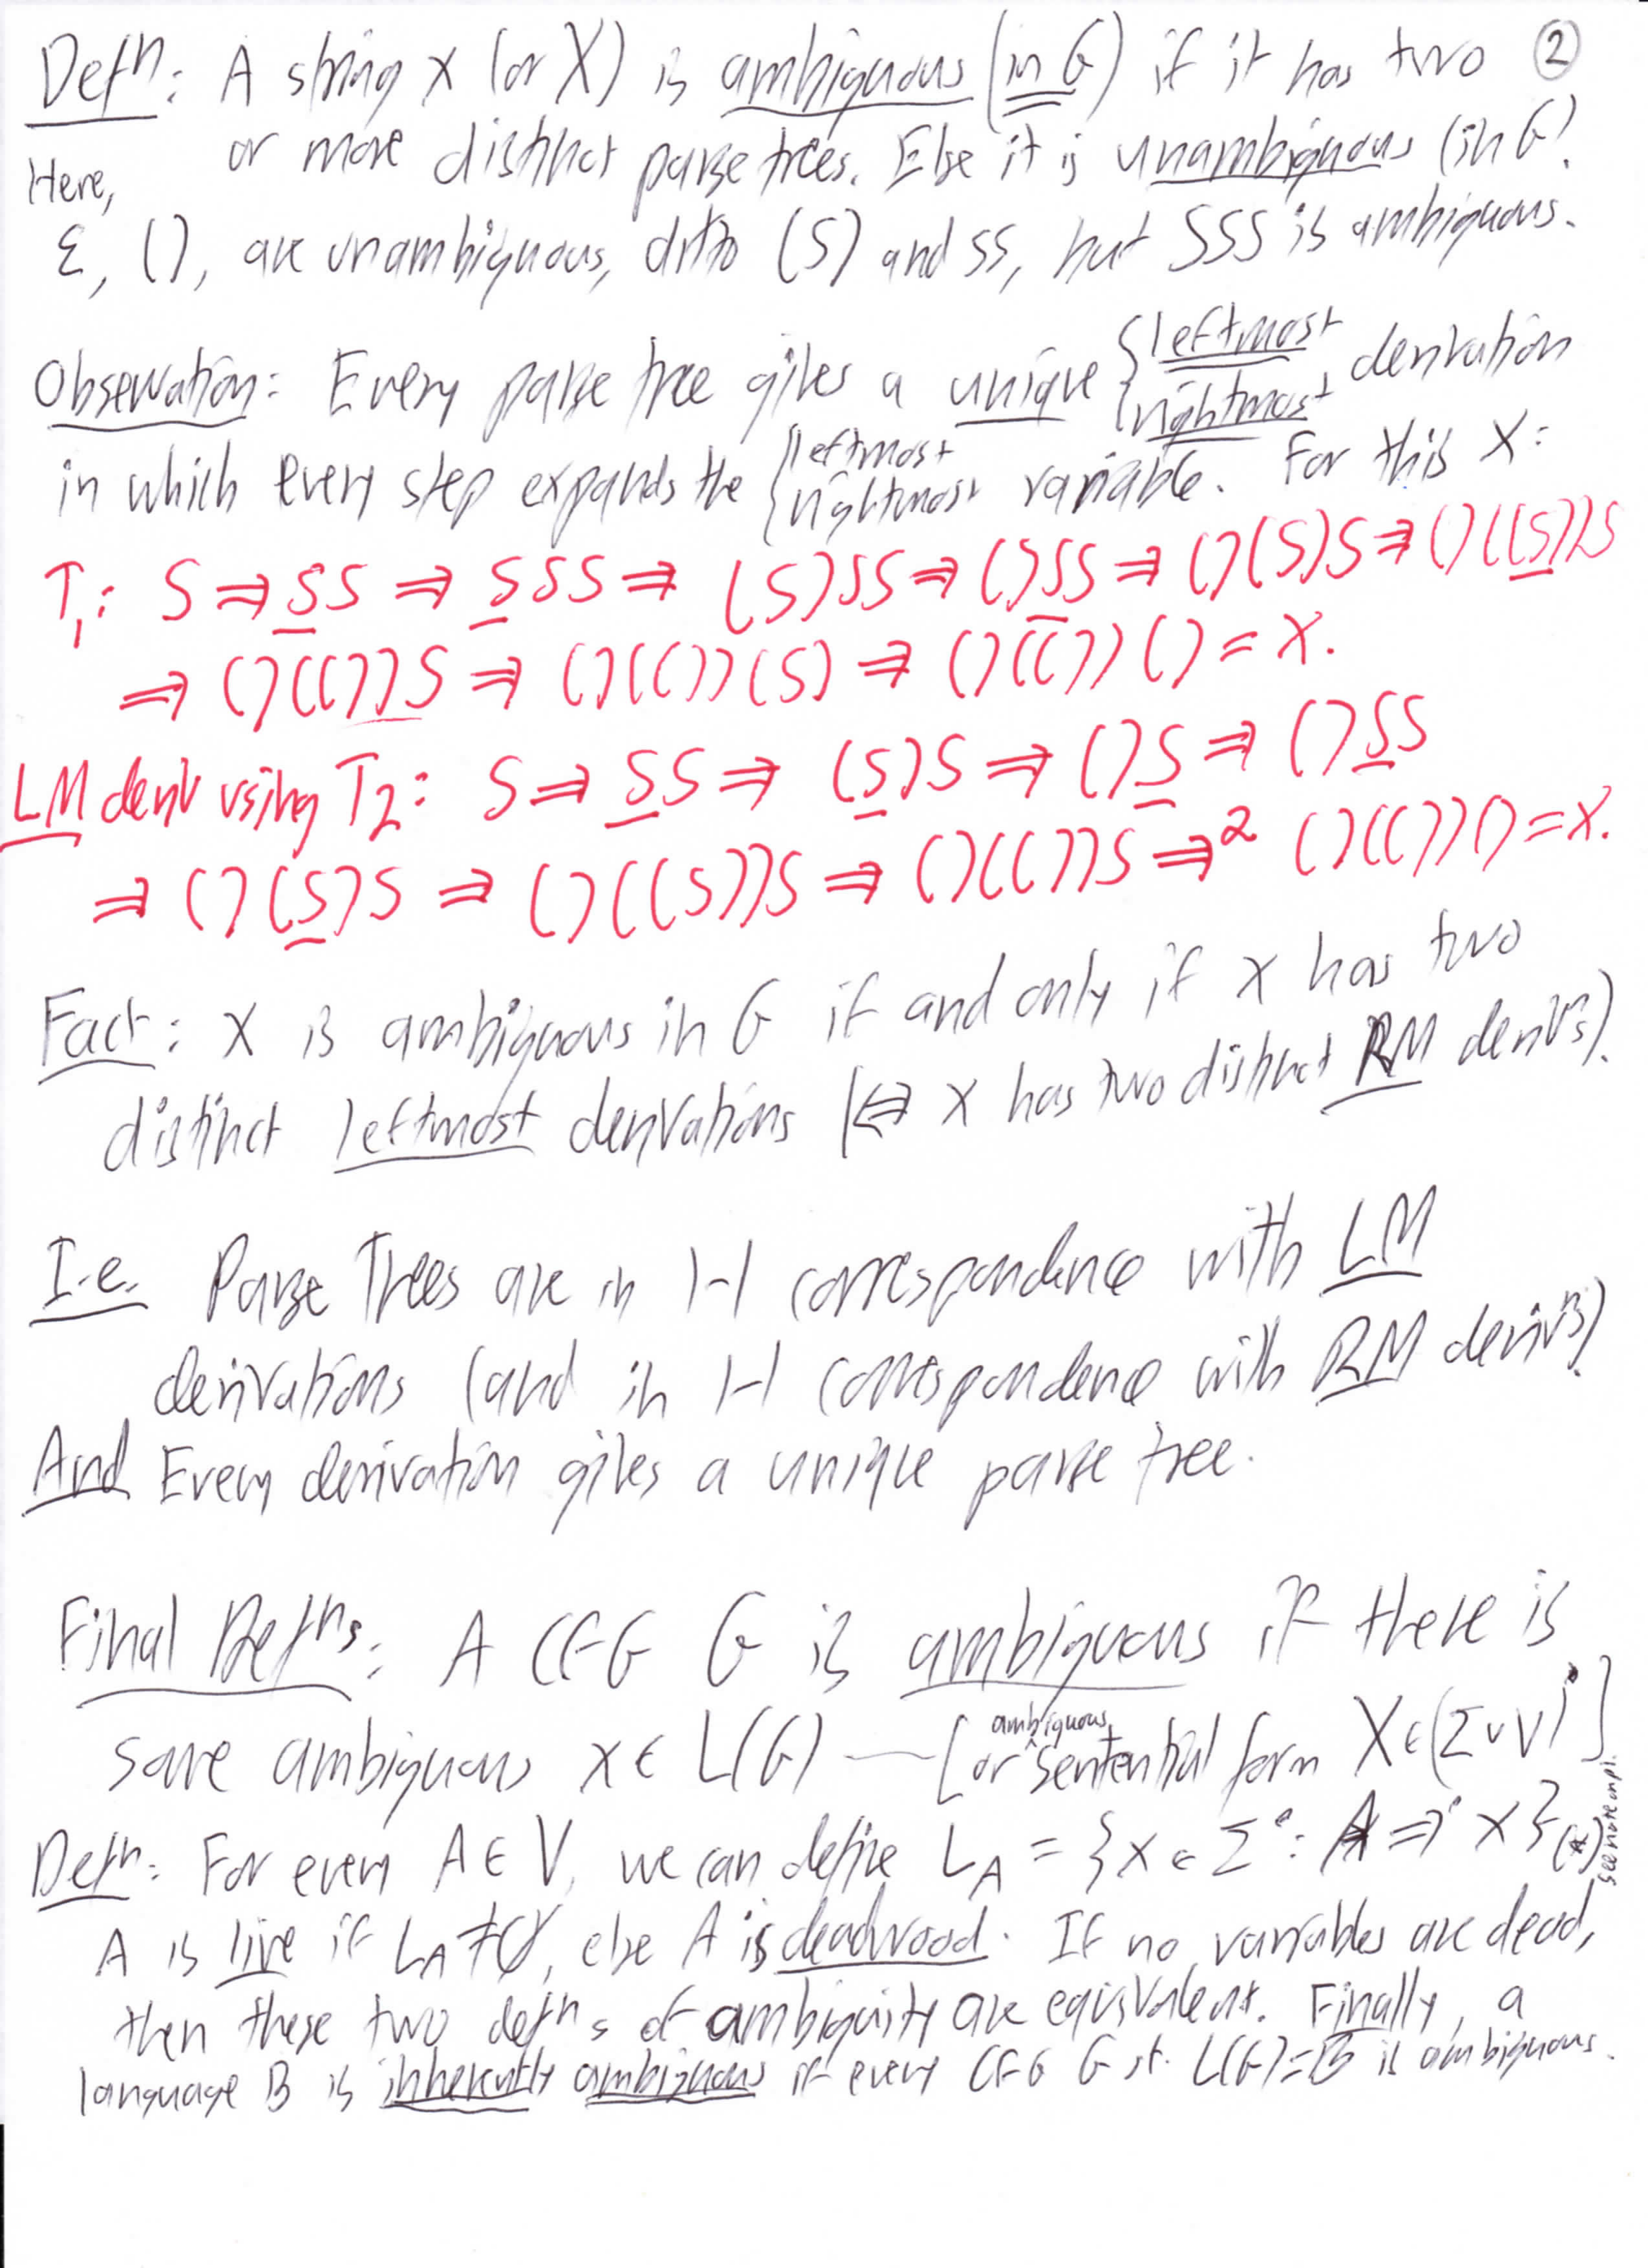 ②
Defⁿ: A string x (or X) is ambiguous (in G) if it has two
or more distinct parse trees. Else it is unambiguous (in G).
Here,
ε, (), are unambiguous, ditto (S) and SS, but SSS is ambiguous.
Observation: Every parse tree gives a unique {leftmost rightmost derivation
in which every step expands the {leftmost rightmost variable. For this X:
T₁: S ⇒ SS ⇒ SSS ⇒ (S)SS ⇒ ()SS ⇒ ()(S)S ⇒ ()((S))S
⇒ ()(())S ⇒ ()(())(S) ⇒ ()(())() = X.
LM deriv using T₂: S ⇒ SS ⇒ (S)S ⇒ ()S ⇒ ()SS
⇒ ()(S)S ⇒ ()((S))S ⇒ ()(())S ⇒² ()(())() = X.
Fact: X is ambiguous in G if and only if X has two
distinct leftmost derivations (⇔ X has two distinct RM derivⁿs).
I.e. Parse Trees are in 1-1 correspondence with LM
derivations (and in 1-1 correspondence with RM derivⁿs)
And Every derivation gives a unique parse tree.
Final Defⁿs: A CFG G is ambiguous if there is
some ambiguous x ∈ L(G) — [or ambiguous sentential form X ∈ (Σ ∪ V)*]
Defⁿ: For every A ∈ V, we can define L_A = {x ∈ Σ*: A ⇒* x} (*) see note on p1.
A is live if L_A ≠ ∅, else A is deadwood. If no variables are dead,
then these two defⁿs of ambiguity are equivalent. Finally, a
language B is inherently ambiguous if every CFG G st. L(G)=B is ambiguous.